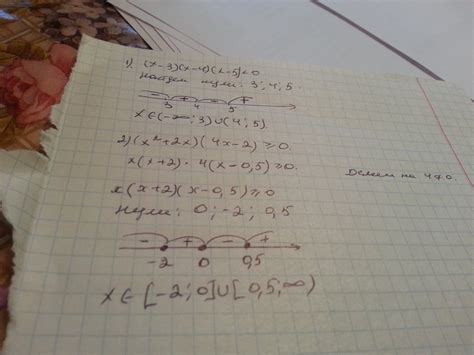 1) (x-3)(x-4)(x-5)<0
Найдем нули: 3; 4; 5
- + - +
3 4 5
x∈(-∞;3)∪(4;5)
2) (x²+2x)(4x-2)≥0
x(x+2)·4(x-0,5)≥0. Делим на 4≠0
x(x+2)(x-0,5)≥0
Нули: 0; -2; 0,5
- + - +
-2 0 0,5
x∈[-2;0]∪[0,5;∞)